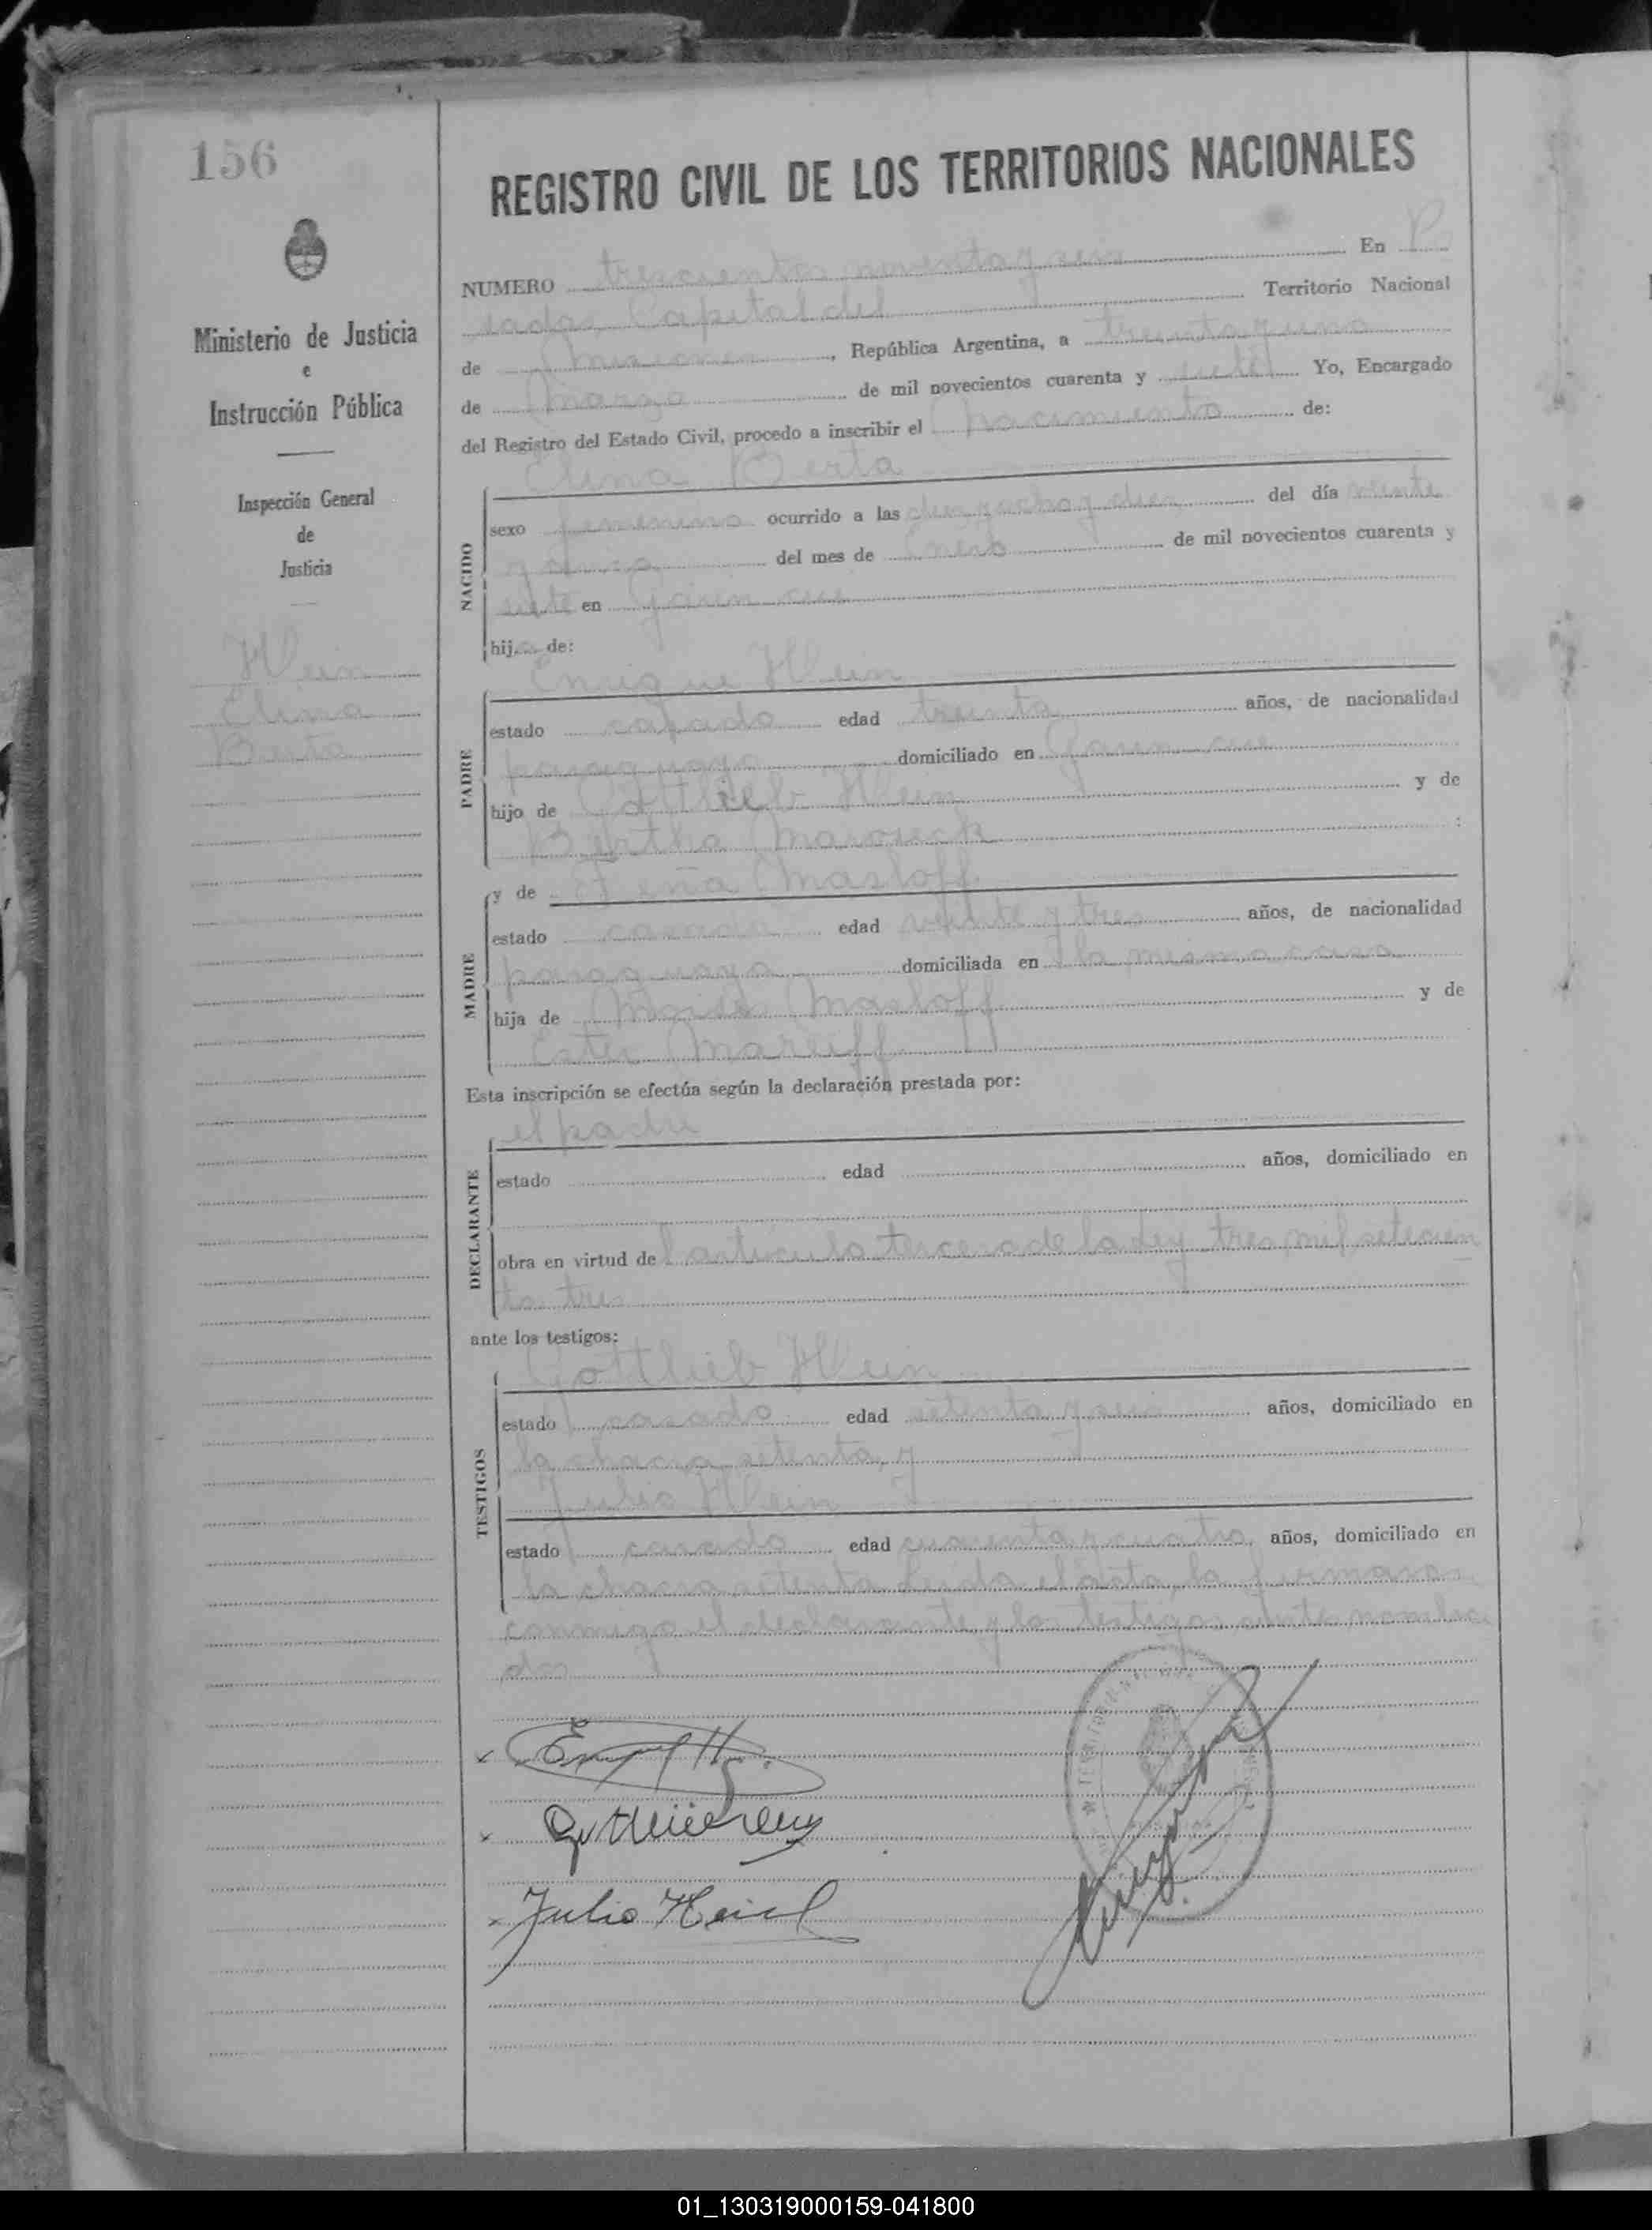 156
Ministerio de Justicia
e
Instrucción Pública
Inspección General
de
Justicia
Hein
Elina
Berta
REGISTRO CIVIL DE LOS TERRITORIOS NACIONALES
NUMERO trescientos noventa y seis En P
sadas Capital del Territorio Nacional
de Misiones, República Argentina, a treinta y uno
de Marzo de mil novecientos cuarenta y siete Yo, Encargado
del Registro del Estado Civil, procedo a inscribir el nacimiento de:
Elina Berta
NACIDO
sexo femenino ocurrido a las diez y ocho y diez del día veinte
y cinco del mes de Enero de mil novecientos cuarenta y
siete en Garin cue
hija de:
PADRE
Enrique Hein
estado casado edad treinta años, de nacionalidad
paraguaya domiciliado en Garin cue
hijo de Gottlieb Hein y de
Bertha
MADRE
y de Masloff
estado casada edad veinte y tres años, de nacionalidad
paraguaya domiciliada en la misma casa
hija de Masloff y de
Ester
Esta inscripción se efectúa según la declaración prestada por:
DECLARANTE
el padre
estado edad años, domiciliado en
obra en virtud del articulo tercero de la Ley tres mil setecien
tos tres
ante los testigos:
TESTIGOS
Gottlieb Hein
estado casado edad setenta y años, domiciliado en
la chacra setenta, y
Julio Hein
estado casado edad cuarenta y cuatro años, domiciliado en
la chacra setenta. Leida el acta, la firmaron
conmigo el declarante y los testigos nombra
dos
Julio Hein
01_130319000159-041800